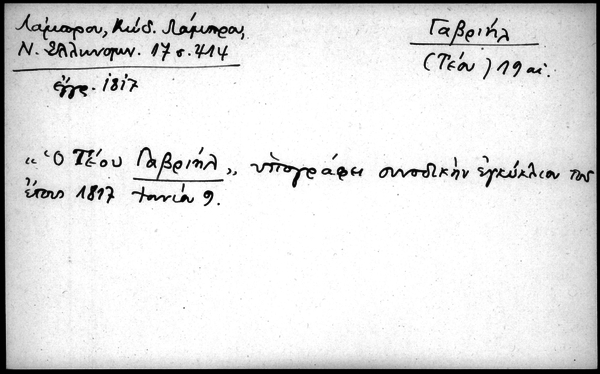 Λάμπρου, Κώδ. Λάμπρου,
Ν. Ἑλληνομν. 17 σ. 414
ἔγγρ. 1817
Γαβριήλ
(Τέου) 19 αἰ.
"Ὁ Τέου Γαβριήλ" ὑπογράφει συνοδικὴν ἐγκύκλιον τοῦ
ἔτους 1817 9.